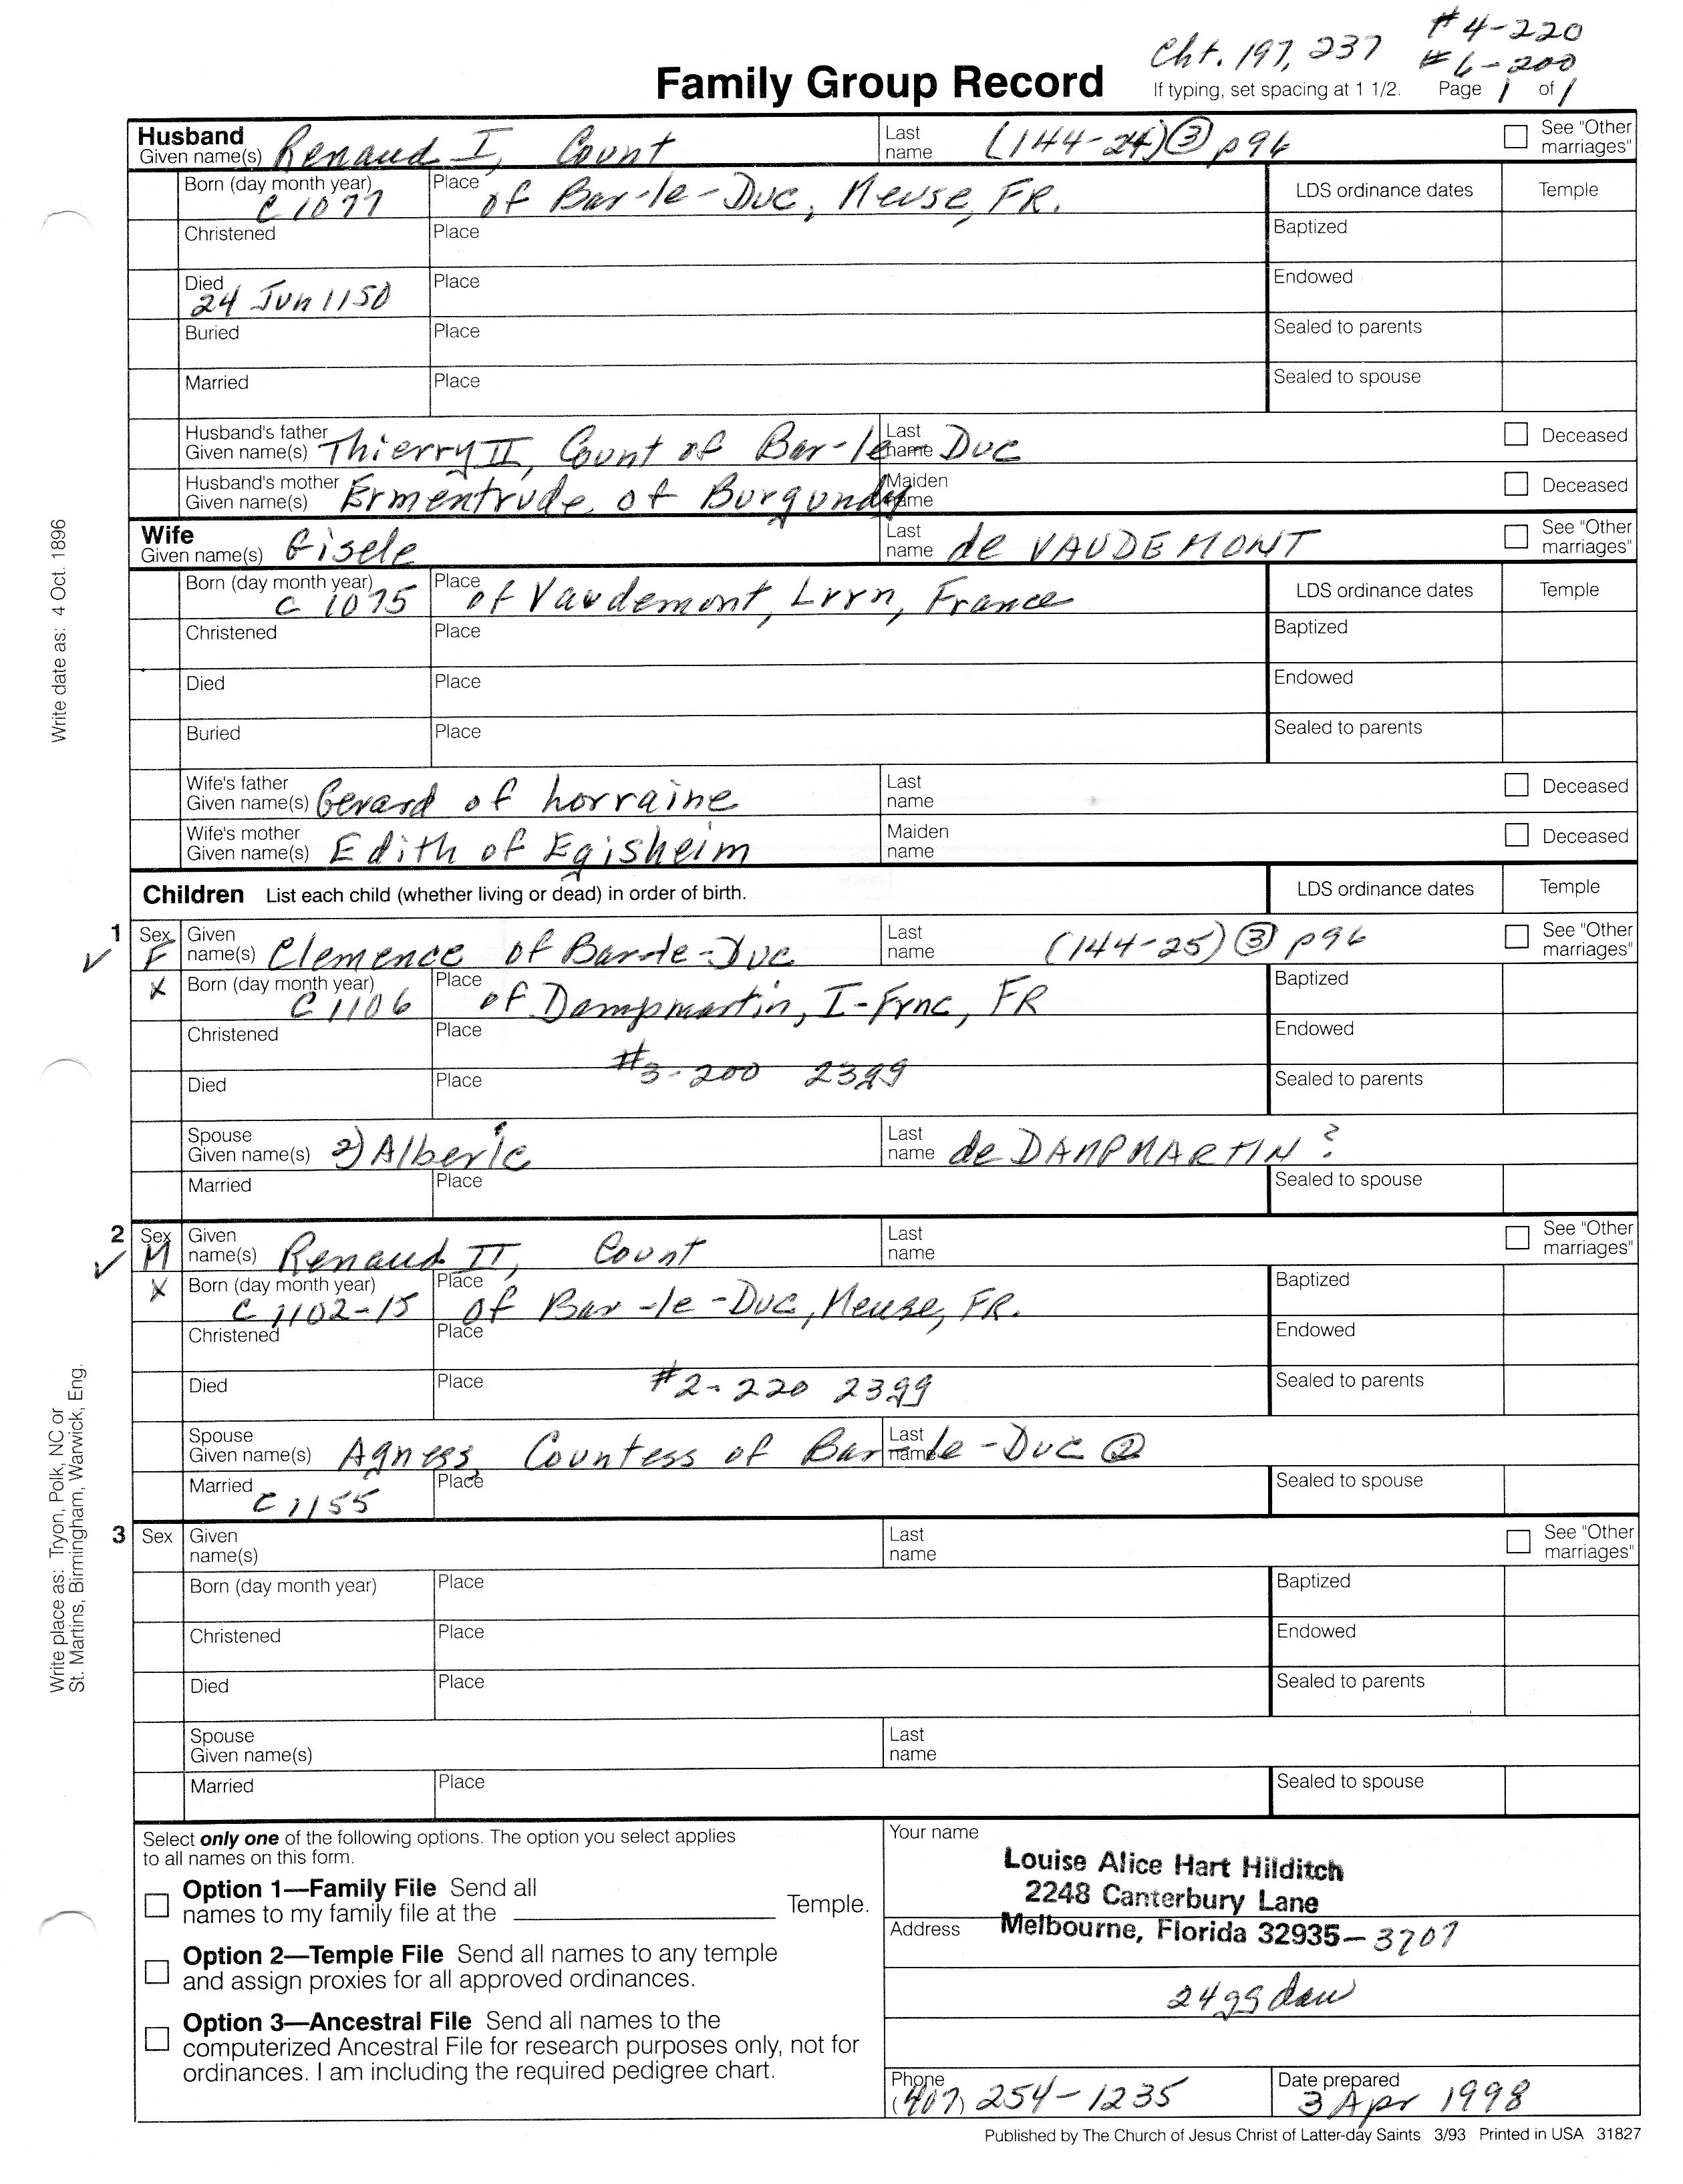 Cht. 197, 237 #4-220
#6-200
Family Group Record
If typing, set spacing at 1 1/2. Page 1 of 1
Husband
Given name(s) Renaud I, Count Last name (144-24) 3 p96 See "Other marriages"
Born (day month year) C 1077 Place of Bar-le-Duc, Meuse, FR. LDS ordinance dates Temple
Christened Place Baptized
Died 24 Jun 1150 Place Endowed
Buried Place Sealed to parents
Married Place Sealed to spouse
Husband's father Given name(s) Thierry II, Count of Bar-le Last name Duc Deceased
Husband's mother Given name(s) Ermentrude of Burgundy Maiden name Deceased
Wife
Given name(s) Gisele Last name de VAUDEMONT See "Other marriages"
Born (day month year) C 1075 Place of Vaudemont, Lrrn, France LDS ordinance dates Temple
Christened Place Baptized
Died Place Endowed
Buried Place Sealed to parents
Wife's father Given name(s) Gerard of Lorraine Last name Deceased
Wife's mother Given name(s) Edith of Egisheim Maiden name Deceased
Children List each child (whether living or dead) in order of birth. LDS ordinance dates Temple
1 Sex F Given name(s) Clemence of Bar-le-Duc Last name (144-25) 3 p96 See "Other marriages"
X Born (day month year) C 1106 Place of Dampmartin, I-Frnc, FR Baptized
Christened Place Endowed
#3-200 2399
Died Place Sealed to parents
Spouse Given name(s) 2) Alberic Last name de DAMPMARTIN ?
Married Place Sealed to spouse
2 Sex M Given name(s) Renaud II, Count Last name See "Other marriages"
X Born (day month year) C 1102-15 Place of Bar-le-Duc, Meuse, FR. Baptized
Christened Place Endowed
Died Place #2-220 2399 Sealed to parents
Spouse Given name(s) Agness, Countess of Bar-le-Duc 2 Last name
Married C 1155 Place Sealed to spouse
3 Sex Given name(s) Last name See "Other marriages"
Born (day month year) Place Baptized
Christened Place Endowed
Died Place Sealed to parents
Spouse Given name(s) Last name
Married Place Sealed to spouse
Select only one of the following options. The option you select applies
to all names on this form.
Option 1—Family File Send all
names to my family file at the Temple.
Option 2—Temple File Send all names to any temple
and assign proxies for all approved ordinances.
Option 3—Ancestral File Send all names to the
computerized Ancestral File for research purposes only, not for
ordinances. I am including the required pedigree chart.
Your name
Louise Alice Hart Hilditch
2248 Canterbury Lane
Address Melbourne, Florida 32935-3707
Phone (407) 254-1235
Date prepared 3 Apr 1998
Published by The Church of Jesus Christ of Latter-day Saints 3/93 Printed in USA 31827
Write date as: 4 Oct. 1896
Write place as: Tryon, Polk, NC or
St. Martins, Birmingham, Warwick, Eng.